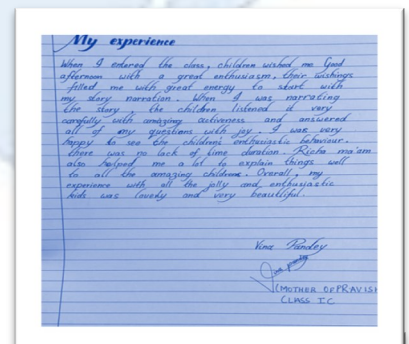 My experience
When I entered the class, children wished me Good
afternoon with a great enthusiasm, their wishings
filled me with great energy to start with
my story narration. When I was narrating
the story, the children listened it very
carefully with amazing activeness and answered
all of my questions with joy. I was very
happy to see the children's enthusiastic behaviour.
there was no lack of time duration. Richa ma'am
also helped me a lot to explain things well
to all the amazing children. Overall, my
experience with all the jolly and enthusiastic
kids was lovely and very beautiful.
Vina Pandey
(MOTHER OF PRAVISH
CLASS I C